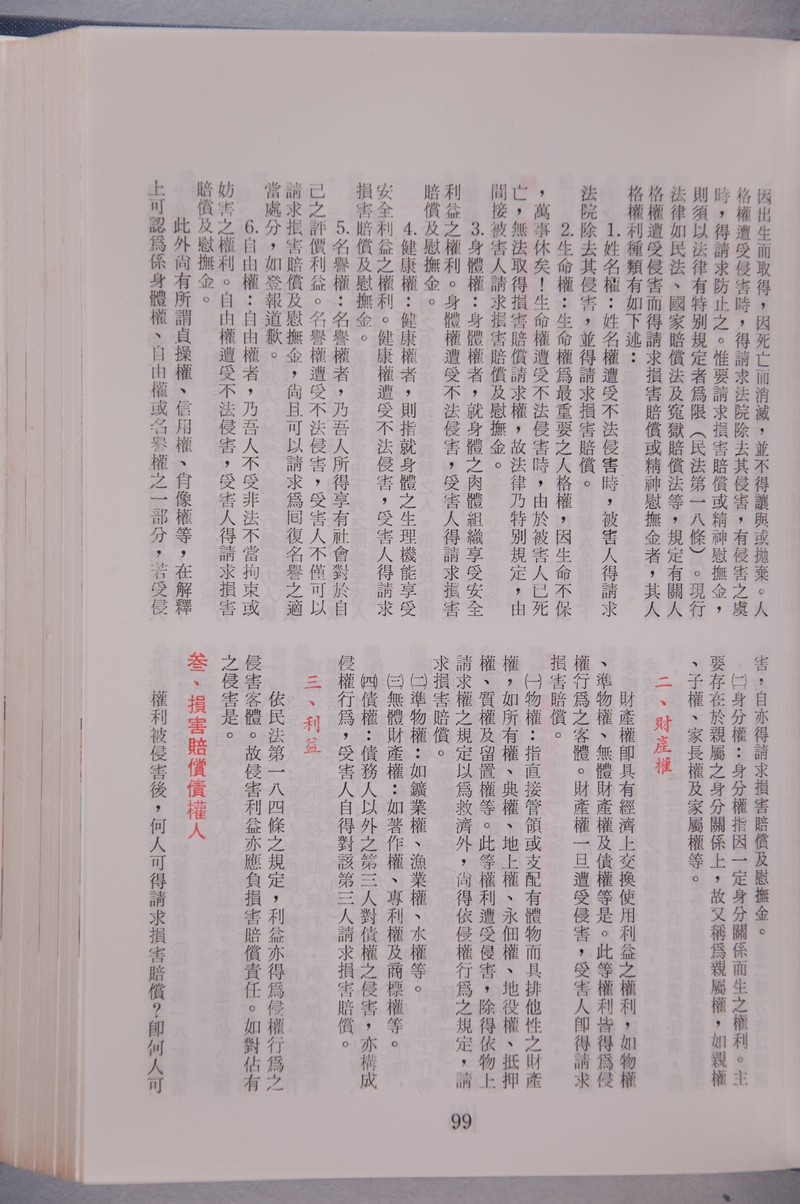 因出生而取得，因死亡而消滅，並不得讓與或拋棄。人
格權遭受侵害時，得請求法院除去其侵害，有侵害之虞
時，得請求防止之。惟要請求損害賠償或精神慰撫金，
則須以法律有特別規定者爲限（民法第一八條）。現行
法律如民法、國家賠償法及寃獄賠償法等，規定有關人
格權遭受侵害而得請求損害賠償或精神慰撫金者，其人
格權利種類有如下述：
1.姓名權：姓名權遭受不法侵害時，被害人得請求
法院除去其侵害，並得請求損害賠償。
2.生命權：生命權爲最重要之人格權，因生命不保
，萬事休矣！生命權遭受不法侵害時，由於被害人已死
亡，無法取得損害賠償請求權，故法律乃特別規定，由
間接被害人請求損害賠償及慰撫金。
3.身體權：身體權者，就身體之肉體組織享受安全
利益之權利。身體權遭受不法侵害，受害人得請求損害
賠償及慰撫金。
4.健康權：健康權者，則指就身體之生理機能享受
安全利益之權利。健康權遭受不法侵害，受害人得請求
損害賠償及慰撫金。
5.名譽權：名譽權者，乃吾人所得享有社會對於自
己之評價利益。名譽權遭受不法侵害，受害人不僅可以
請求損害賠償及慰撫金，尚且可以請求爲回復名譽之適
當處分，如登報道歉。
6.自由權：自由權者，乃吾人不受非法不當拘束或
妨害之權利。自由權遭受不法侵害，受害人得請求損害
賠償及慰撫金。
此外尚有所謂貞操權、信用權、肖像權等，在解釋
上可認爲係身體權、自由權或名譽權之一部分，若受侵
害，自亦得請求損害賠償及慰撫金。
㈡身分權：身分權指因一定身分關係而生之權利。主
要存在於親屬之身分關係上，故又稱爲親屬權，如親權
、子權、家長權及家屬權等。
二、財產權
財產權即具有經濟上交換使用利益之權利，如物權
、準物權、無體財產權及債權等是。此等權利皆得爲侵
權行爲之客體。財產權一旦遭受侵害，受害人即得請求
損害賠償。
㈠物權：指直接管領或支配有體物而具排他性之財產
權，如所有權、典權、地上權、永佃權、地役權、抵押
權、質權及留置權等。此等權利遭受侵害，除得依物上
請求權之規定以爲救濟外，尚得依侵權行爲之規定，請
求損害賠償。
㈡準物權：如鑛業權、漁業權、水權等。
㈢無體財產權：如著作權、專利權及商標權等。
㈣債權：債務人以外之第三人對債權之侵害，亦構成
侵權行爲，受害人自得對該第三人請求損害賠償。
三、利益
依民法第一八四條之規定，利益亦得爲侵權行爲之
侵害客體。故侵害利益亦應負損害賠償責任。如對佔有
之侵害是。
叁、損害賠償債權人
權利被侵害後，何人可得請求損害賠償？即何人可
99